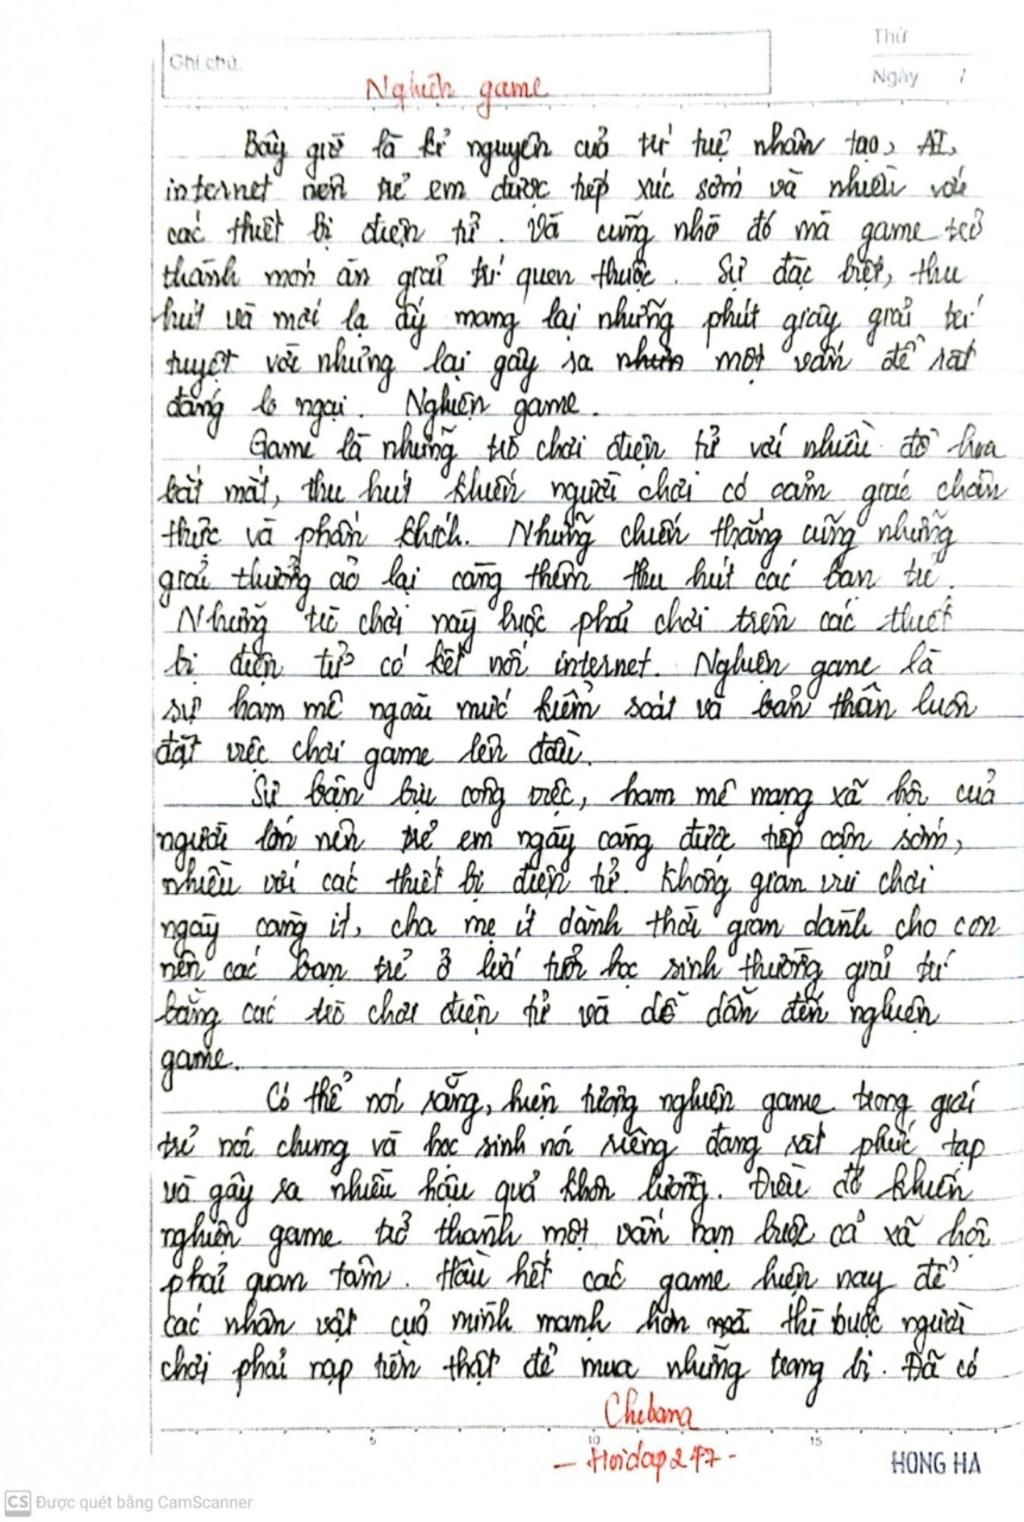 Ghi chú:
Thứ
Ngày /
Nghiện game
Bây giờ là kỉ nguyên củả trí tuệ nhân tạo, AI,
internet nên trẻ em được tiếp xúc sớm và nhiều với
các thiết bị điện tử. Và cũng nhờ đó mà game trở
thành món ăn giải trí quen thuộc. Sự đặc biệt, thu
hút và mới lạ ấy mang lại những phút giây giải trí
tuyệt vời nhưng lại gây ra một vấn đề rất
đáng lo ngại. Nghiện game.
Game là những trò chơi điện tử với nhiều đồ họa
bắt mắt, thu hút khiến người chơi có cảm giác chân
thực và phấn khích. Những chiến thắng cũng những
giải thưởng ảo lại càng thêm thu hút các bạn trẻ.
Những trò chơi này buộc phải chơi trên các thiết
bị điện tử có kết nối internet. Nghiện game là
sự ham mê ngoài mức kiểm soát và bản thân luôn
đặt việc chơi game lên đầu.
Sự bận bịu công việc, ham mê mạng xã hội của
người lớn nên trẻ em ngày càng được tiếp cận sớm,
nhiều với các thiết bị điện tử. Không gian vui chơi
ngày càng ít, cha mẹ ít dành thời gian dành cho con
nên các bạn trẻ ở lứa tuổi học sinh thường giải trí
bằng các trò chơi điện tử và dễ dẫn đến nghiện
game.
Có thể nói rằng, hiện tượng nghiện game trong giới
trẻ nói chung và học sinh nói riêng đang rất phức tạp
và gây ra nhiều hậu quả khôn lường. Điều đó khiến
nghiện game trở thành một vấn nạn buộc cả xã hội
phải quan tâm. Hầu hết các game hiện nay để
các nhân vật củả mình mạnh hơn thì buộc người
chơi phải nạp tiền thật để mua những trang bị. Đã có
Chibana
5 10 15
- Hoidap247 -
HONG HA
CS Được quét bằng CamScanner